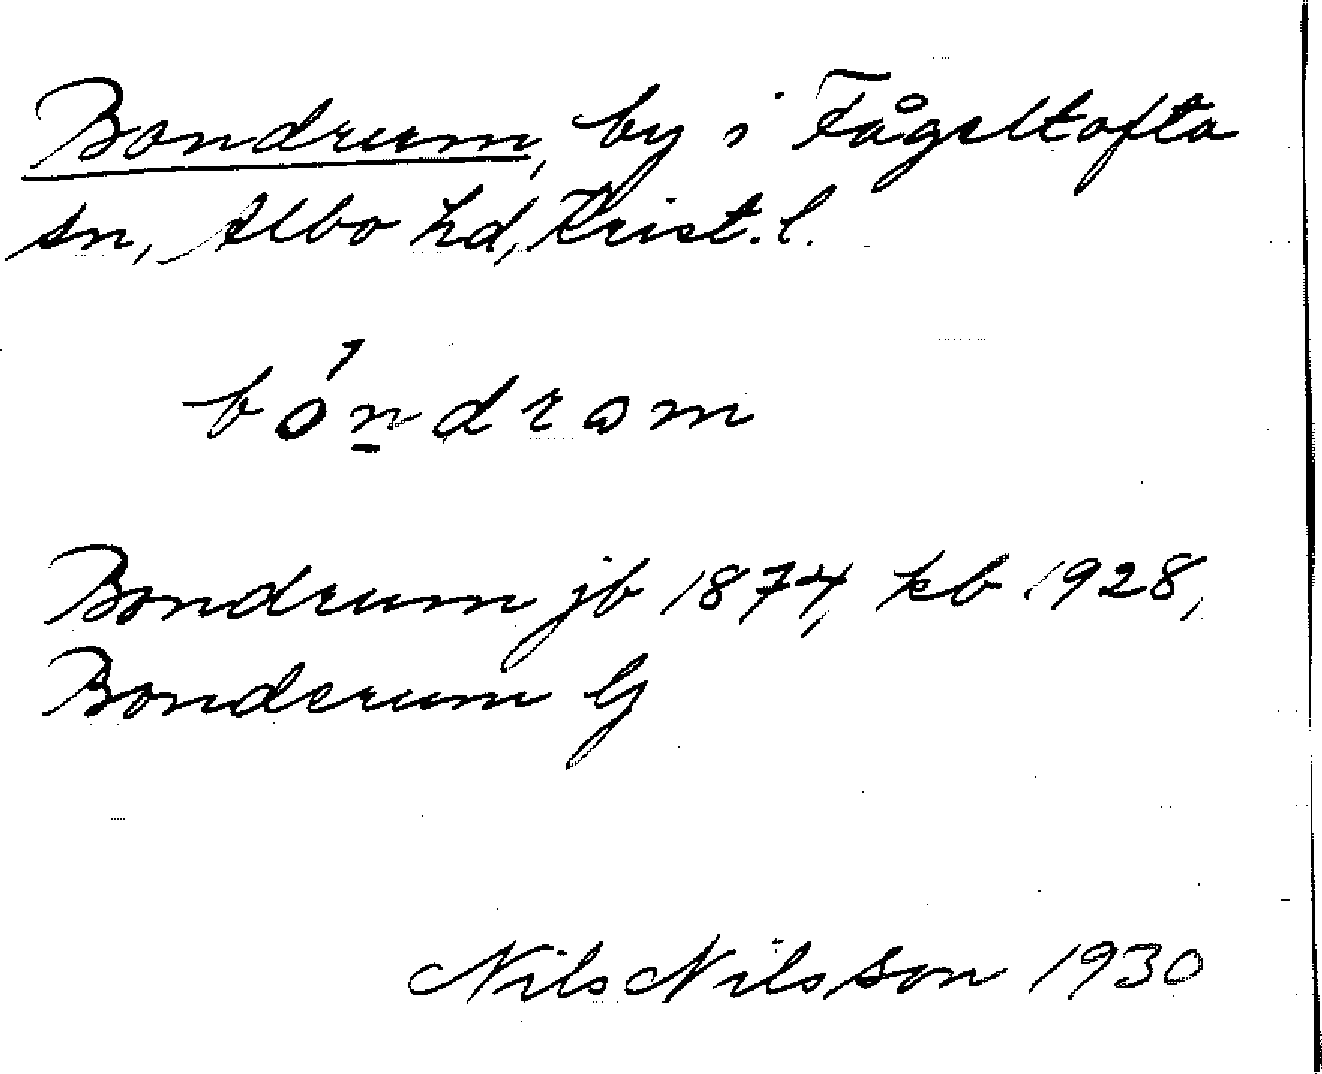 Bondrum, by i Fågeltofta
sn, Albo hd, Krist. l.
bóndrom
Bondrum jb 1874, kb 1928,
Bonderum G
Nils Nilsson 1930